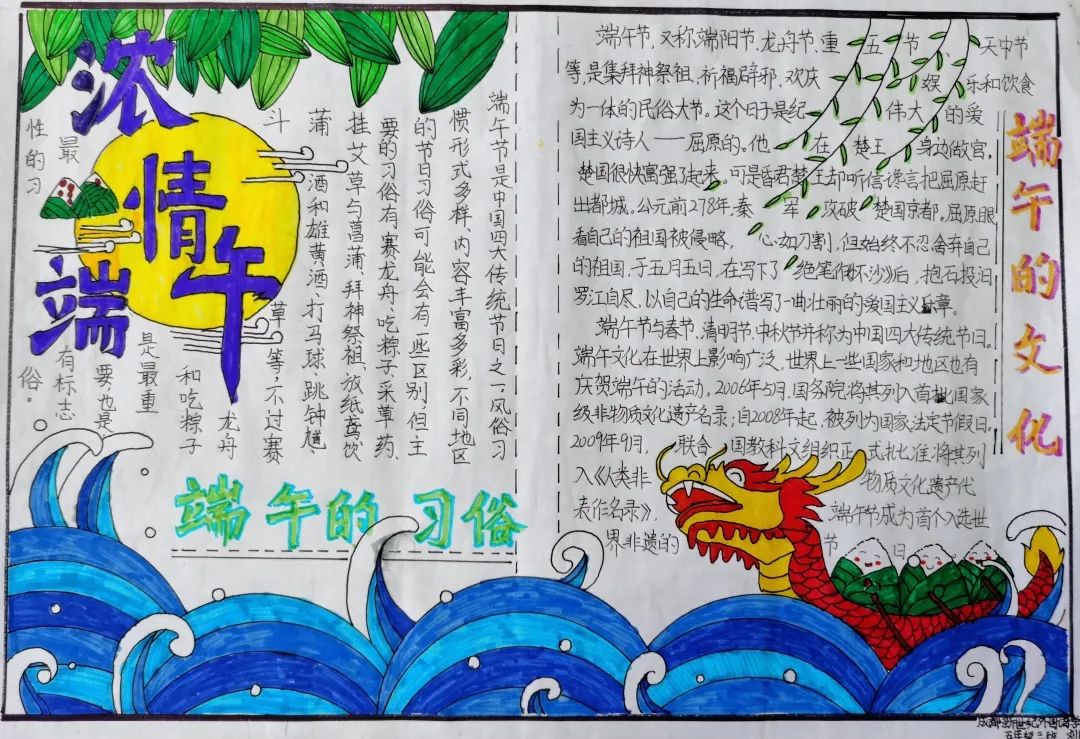 浓情端午
端午节是中国四大传统节日之一,风俗习
惯形式多样、内容丰富多彩,不同地区
的节日习俗可能会有一些区别,但主
要的习俗有赛龙舟、吃粽子、采草药、
挂艾草与菖蒲、拜神祭祖、放纸鸢、饮
蒲酒和雄黄酒、打马球、跳钟馗、
斗草等,不过赛
龙舟
和吃粽子
是最重
要也是
最有标志
性的习俗。
端午的习俗
端午的文化
端午节,又称端阳节、龙舟节、重五节、天中节
等,是集拜神祭祖、祈福辟邪、欢庆娱乐和饮食
为一体的民俗大节。这个日子是纪伟大的爱
国主义诗人——屈原的。他在楚王身边做官,
楚国很快富强了起来。可是昏君楚王却听信谗言把屈原赶
出都城。公元前278年,秦军攻破楚国京都。屈原眼
看自己的祖国被侵略,心如刀割,但始终不忍舍弃自己
的祖国,于五月五日,在写下了绝笔作《怀沙》后,抱石投汨
罗江自尽,以自己的生命谱写了一曲壮丽的爱国主义乐章。
端午节与春节、清明节、中秋节并称为中国四大传统节日。
端午文化在世界上影响广泛,世界上一些国家和地区也有
庆贺端午的活动。2006年5月,国务院将其列入首批国家
级非物质文化遗产名录;自2008年起,被列为国家法定节假日。
2009年9月,联合国教科文组织正式批准将其列
入《人类非物质文化遗产代
表作名录》,端午节成为首个入选世
界非遗的节日。
五年级三班